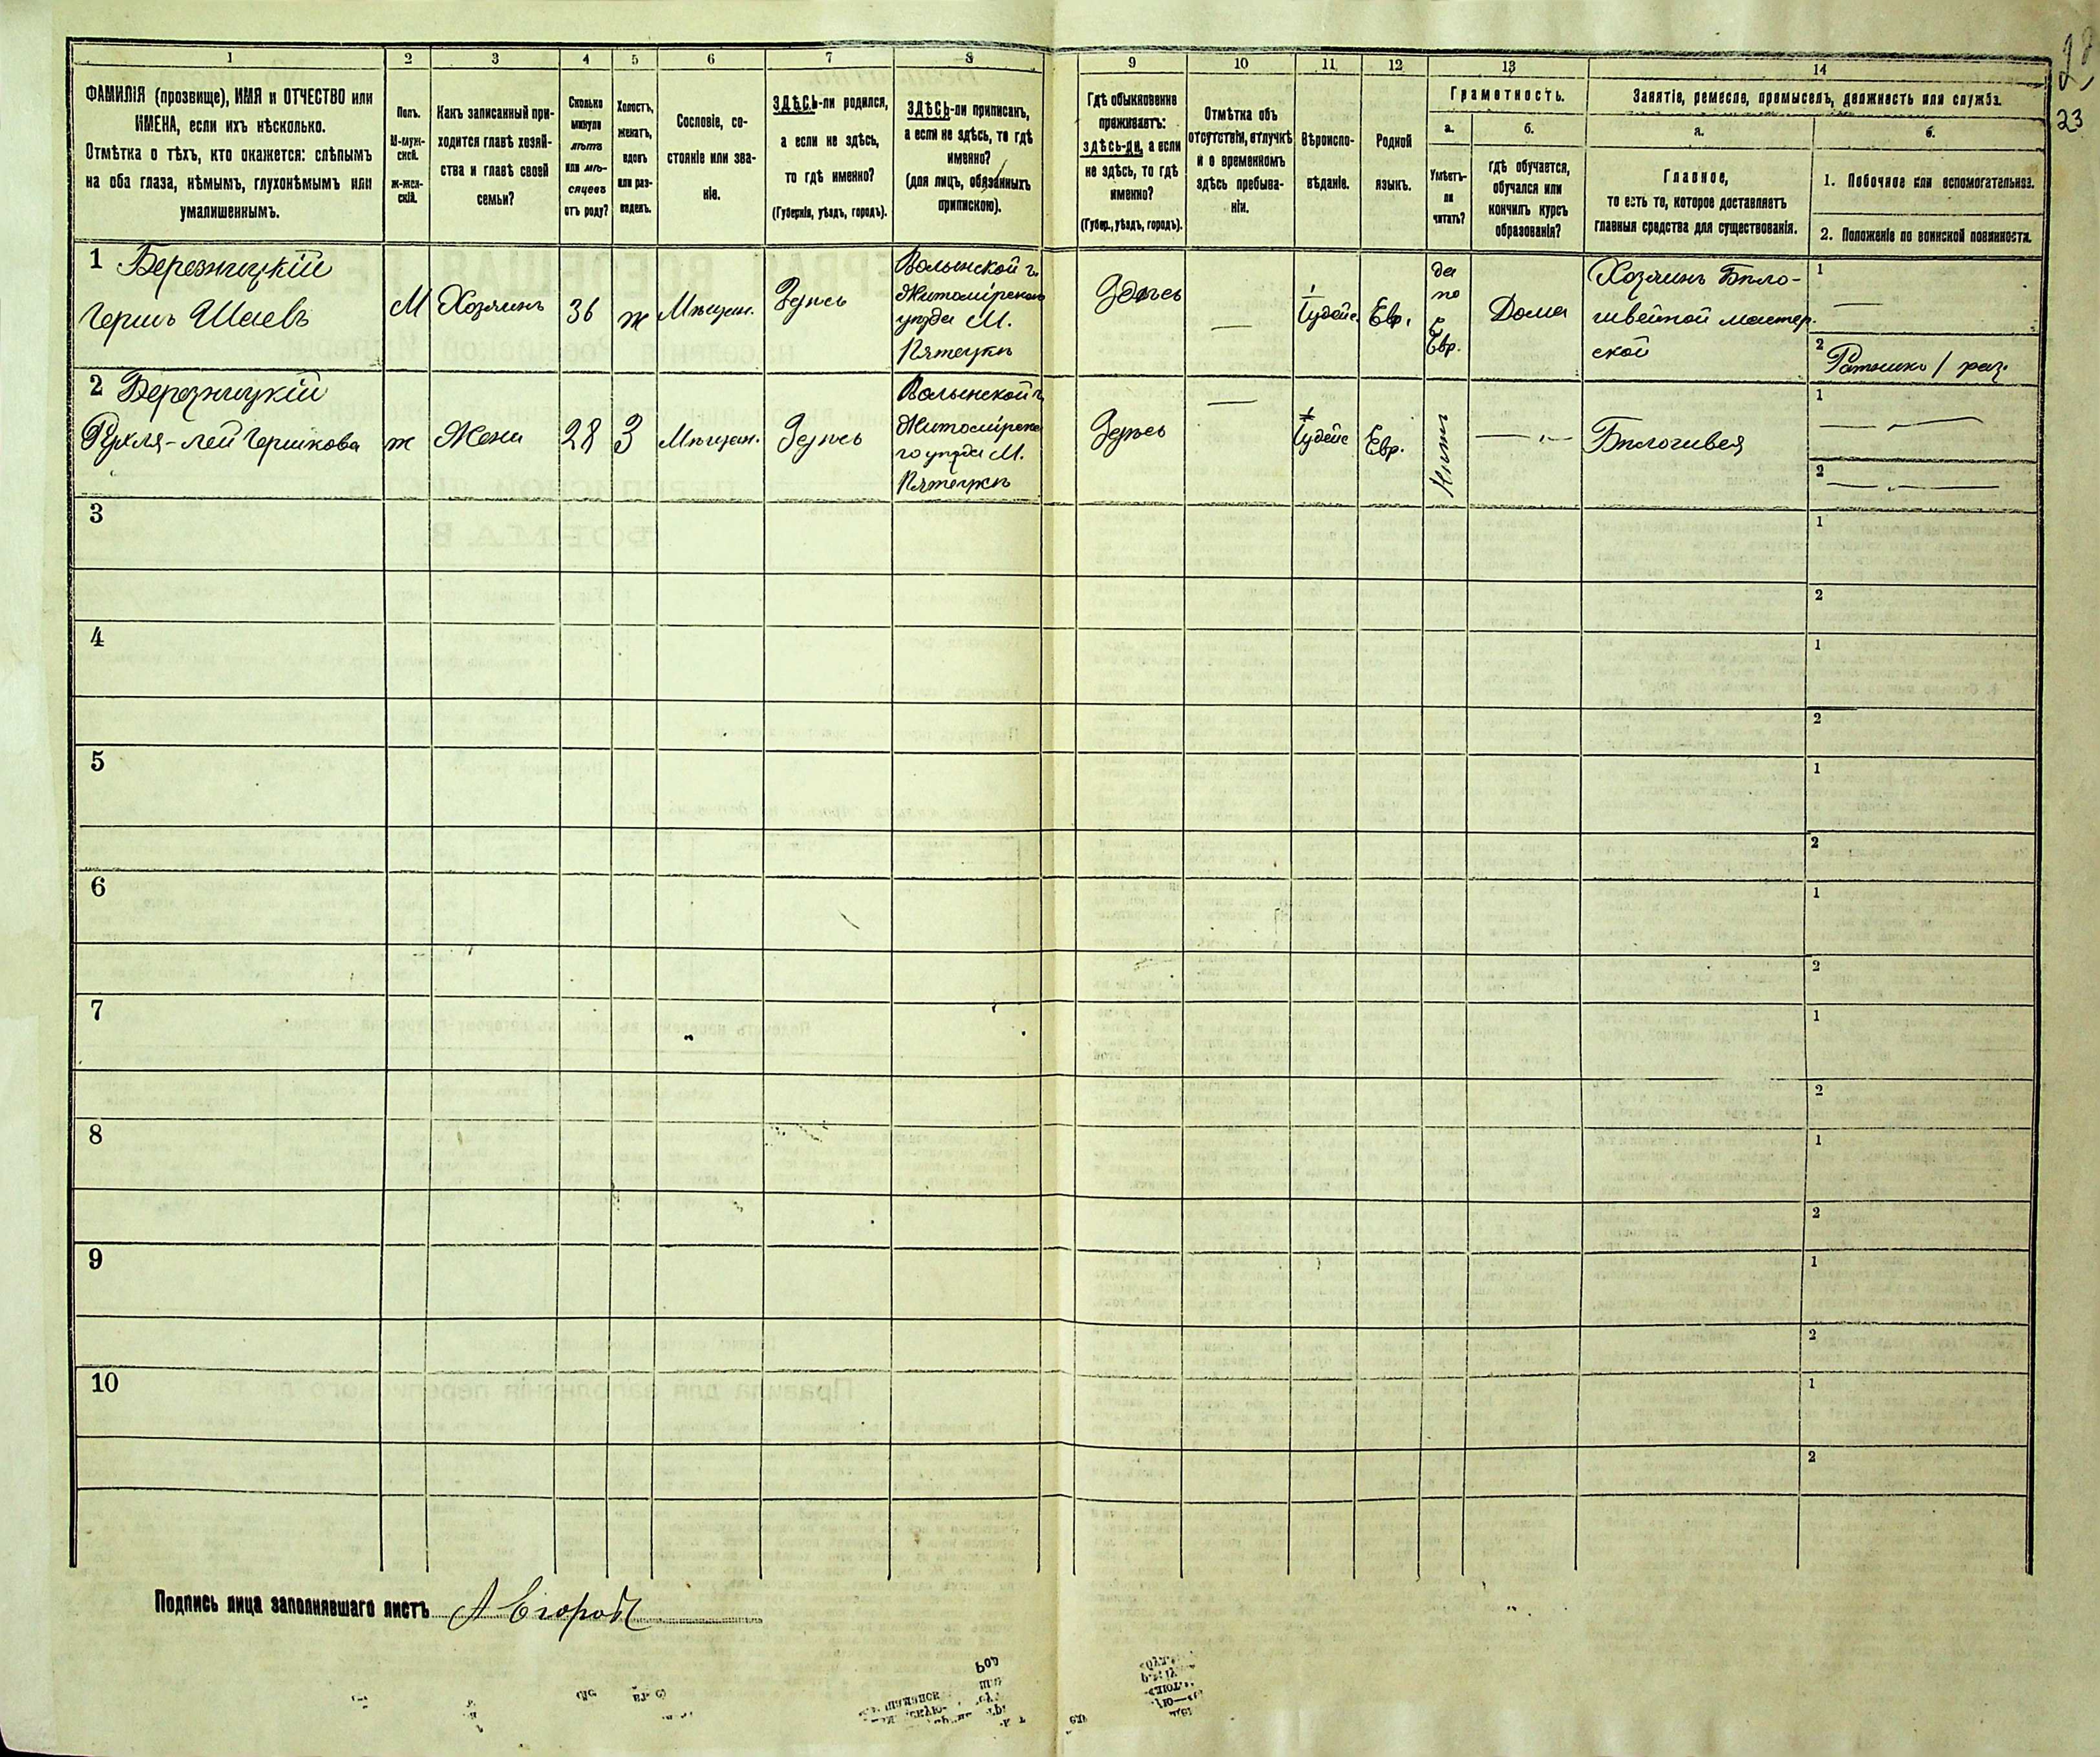 1 2 3 4 5 6 7 8 9 10 11 12 13 14
ФАМИЛІЯ (прозвище), ИМЯ и ОТЧЕСТВО или
ИМЕНА, если ихъ нѣсколько.
Отмѣтка о тѣхъ, кто окажется: слѣпымъ
на оба глаза, нѣмымъ, глухонѣмымъ или
умалишеннымъ.
Полъ.
М-муж-
ской.
ж-жен-
скій.
Какъ записанный при-
ходится главѣ хозяй-
ства и главѣ своей
семьи?
Сколько
минуло
лѣтъ
или мѣ-
сяцевъ
отъ роду?
Холостъ,
женатъ,
вдовъ
или раз-
веденъ.
Сословіе, со-
стояніе или зва-
ніе.
ЗДѢСЬ-ли родился,
а если не здѣсь,
то гдѣ именно?
(Губернія, уѣздъ, городъ).
ЗДѢСЬ-ли приписанъ,
а если не здѣсь, то гдѣ
именно?
(для лицъ, обязанныхъ
припискою).
Гдѣ обыкновенно
проживаетъ:
здѣсь-ли, а если
не здѣсь, то гдѣ
именно?
(Губер., уѣздъ, городъ).
Отмѣтка объ
отсутствіи, отлучкѣ
и о временномъ
здѣсь пребыва-
ніи.
Вѣроиспо-
вѣданіе.
Родной
языкъ.
Грамотность.
а.
Умѣетъ-
ли
читать?
б.
гдѣ обучается,
обучался или
кончилъ курсъ
образованія?
Занятіе, ремесло, промыселъ, должность или служба.
а.
Главное,
то есть то, которое доставляетъ
главныя средства для существованія.
б.
1. Побочное или вспомогательное.
2. Положеніе по воинской повинности.
23
1 Березницкій
Гершъ Шаевъ
М
Хозяинъ
36
ж
Мѣщан.
Здѣсь
Волынской г.
Житомірскаго
уѣзда М.
Пятецкѣ
Здѣсь
—
Іудейс.
Евр.
да
по
Евр.
Дома
Хозяинъ Бѣло-
швейной мастер.
ской
1 —
2 Ратникъ 1 раз.
2 Березницкій
Рухля-Лея Гершкова
ж
Жена
28
З
Мѣщан.
Здѣсь
Волынской г.
Житомірска
го уѣзда М.
Пятецкѣ
Здѣсь
—
Іудейс
Евр.
Нѣтъ
— " —
Бѣлошвея
1 — —
2 — —
3
1
2
4
1
2
5
1
2
6
1
2
7
1
2
8
1
2
9
1
2
10
1
2
Подпись лица заполнявшаго листъ